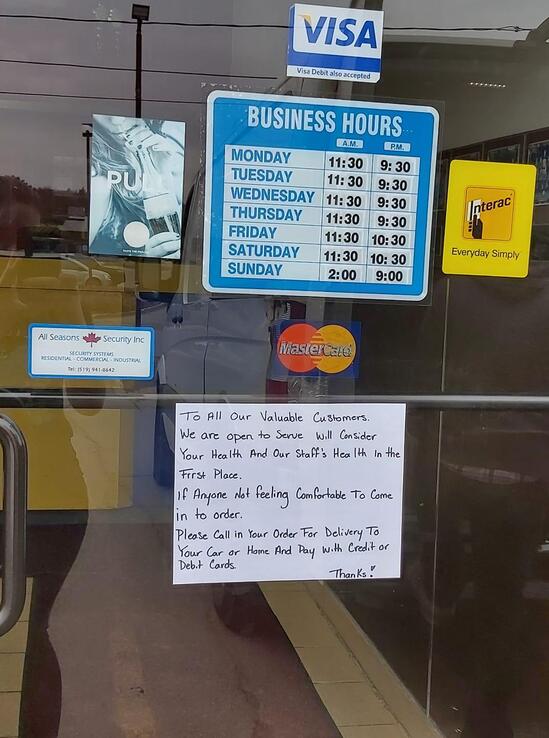 VISA
Visa Debit also accepted
BUSINESS HOURS
A.M. P.M.
MONDAY 11:30 9:30
TUESDAY 11:30 9:30
WEDNESDAY 11:30 9:30
THURSDAY 11:30 9:30
FRIDAY 11:30 10:30
SATURDAY 11:30 10:30
SUNDAY 2:00 9:00
Interac
Everyday Simply
All Seasons Security Inc
SECURITY SYSTEMS
RESIDENTIAL - COMMERCIAL - INDUSTRIAL
Tel: (519) 941-0642
MasterCard
To All Our Valuable Customers.
We are open to Serve Will Consider
Your Health And Our Staff's Health In the
First Place.
If Anyone Not feeling Comfortable To Come
in to order.
Please Call in Your Order For Delivery To
Your Car or Home And Pay With Credit or
Debit Cards.
Thanks!